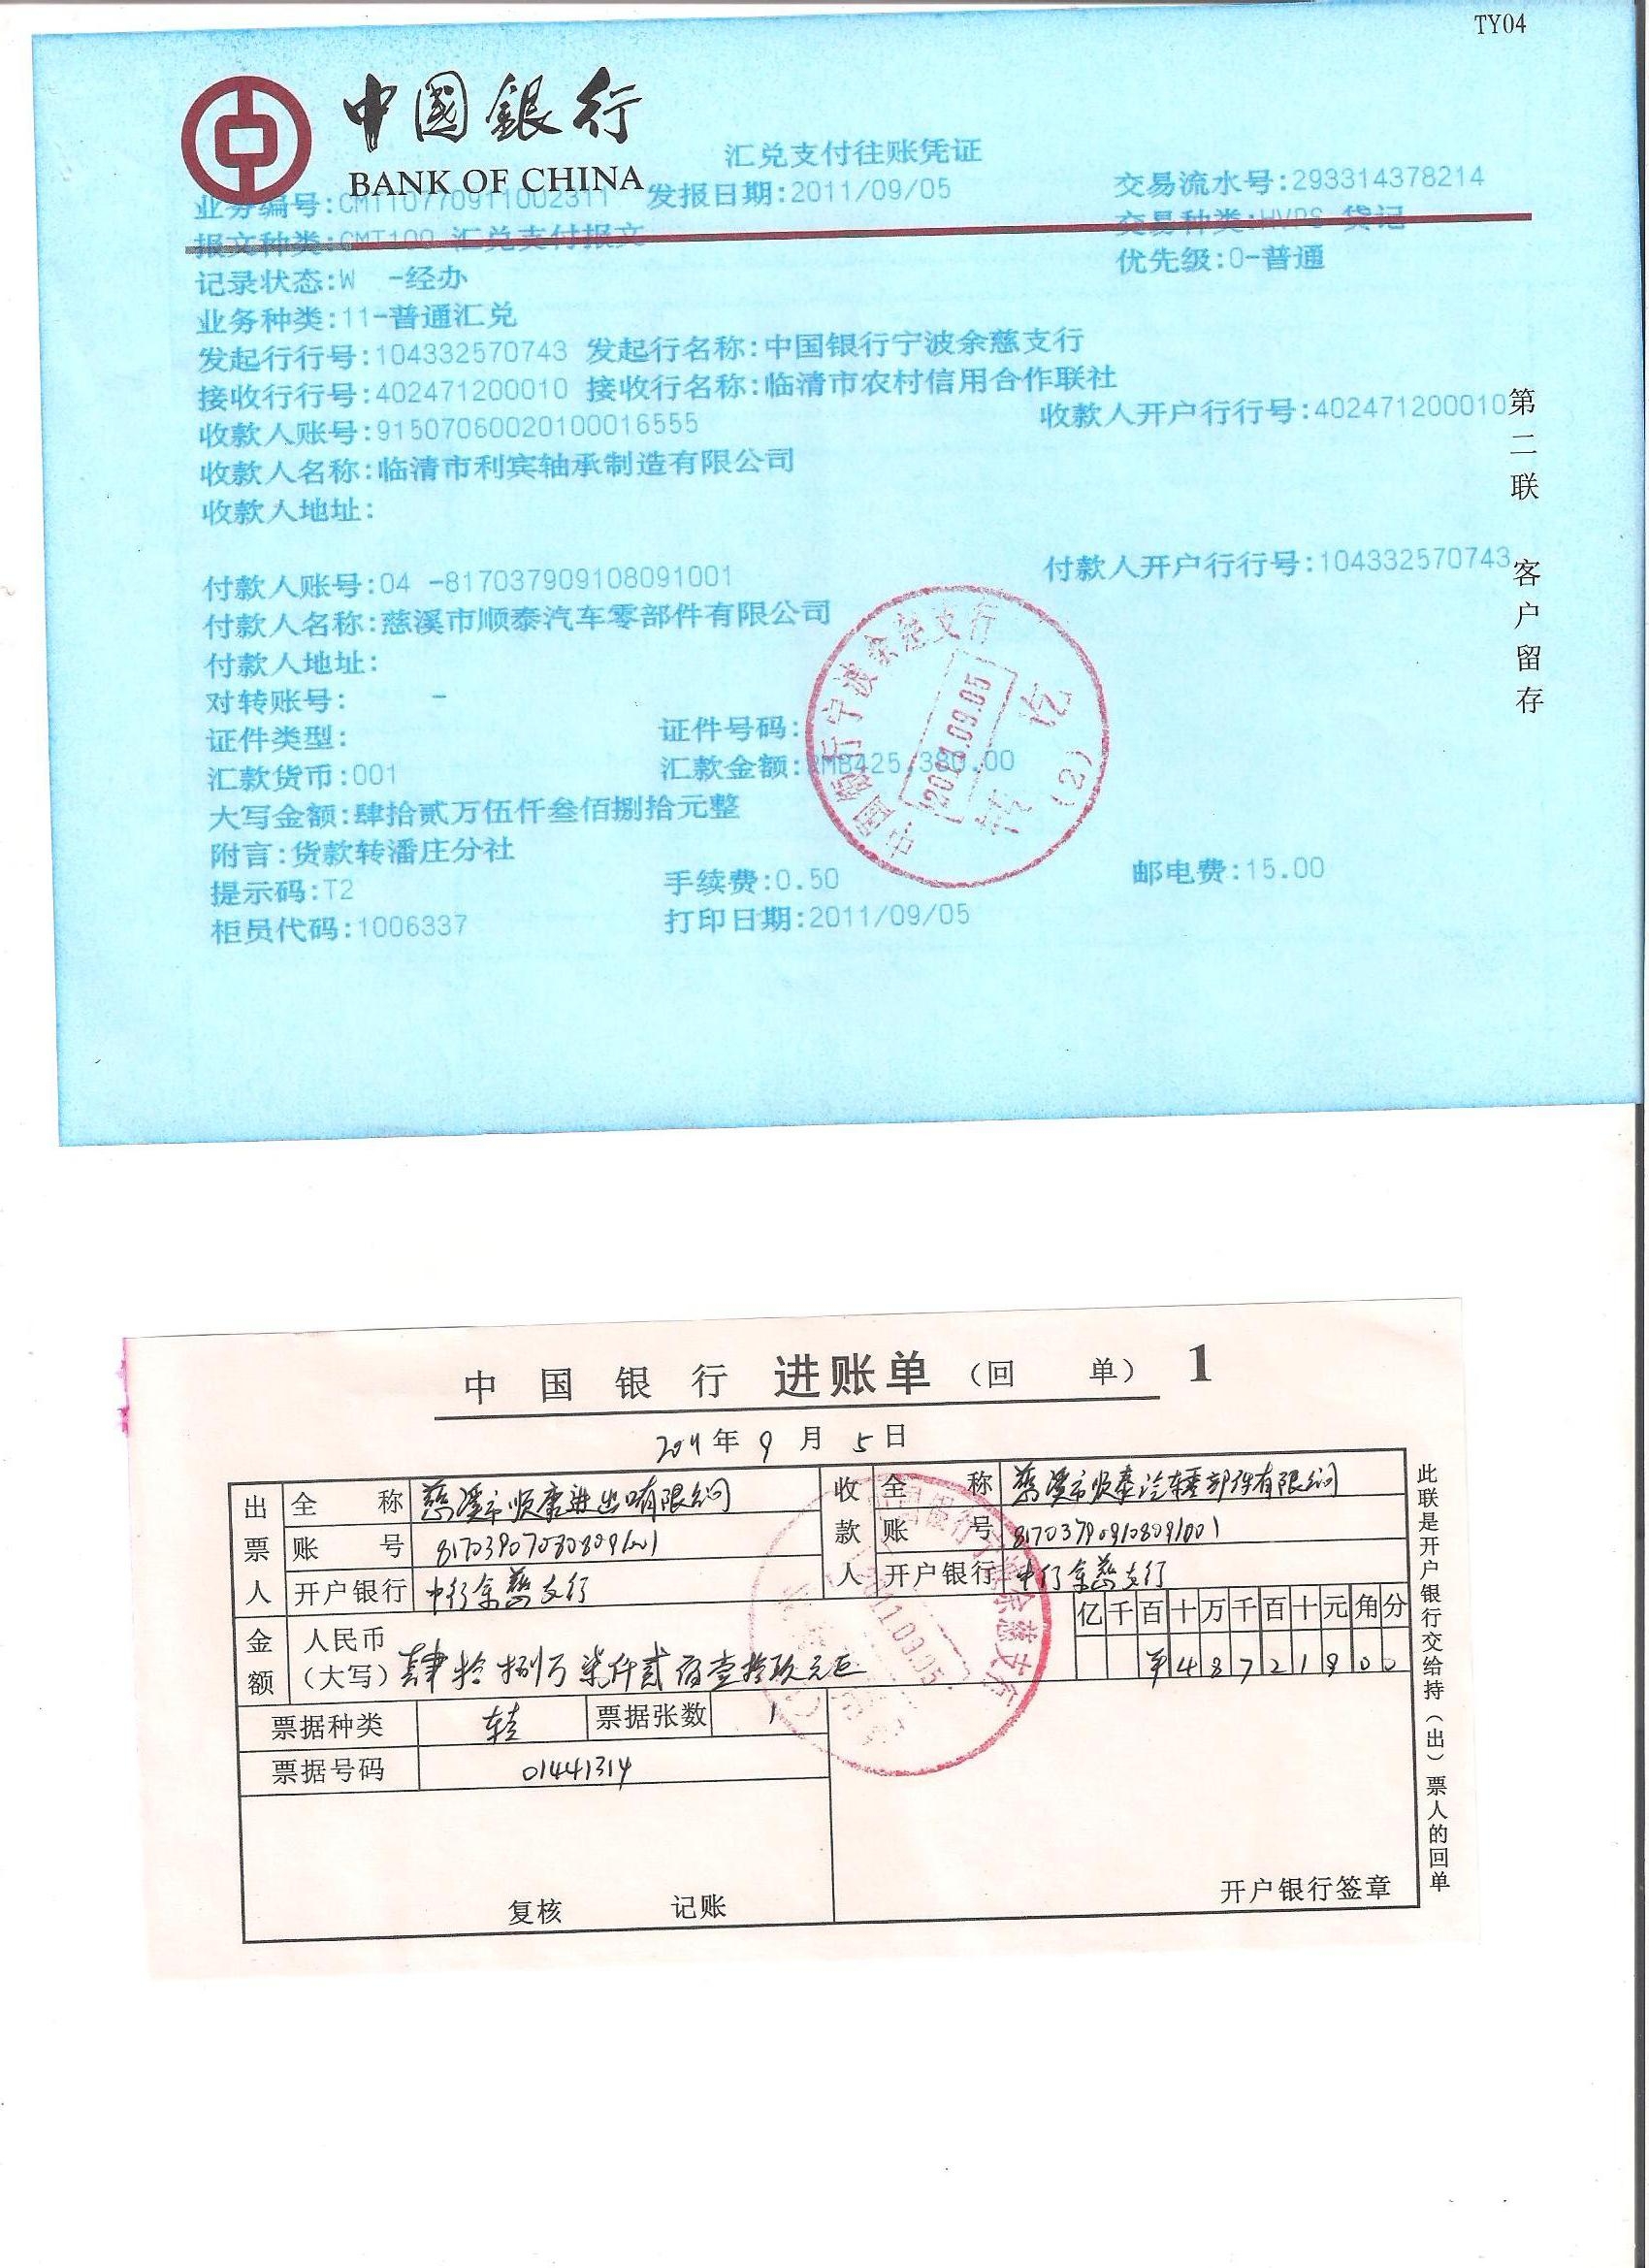 TY04
中國銀行
BANK OF CHINA
汇兑支付往账凭证
业务编号:CMT1077091100231 发报日期:2011/09/05 交易流水号:293314378214
报文种类:CMT100 汇兑支付报文 交易种类:HVPS 贷记
记录状态:W -经办 优先级:0-普通
业务种类:11-普通汇兑
发起行行号:104332570743 发起行名称:中国银行宁波余慈支行
接收行行号:402471200010 接收行名称:临清市农村信用合作联社
收款人账号:91507060020100016555 收款人开户行行号:402471200010
收款人名称:临清市利宾轴承制造有限公司
收款人地址:
付款人账号:04 -817037909108091001 付款人开户行行号:104332570743
付款人名称:慈溪市顺泰汽车零部件有限公司
付款人地址:
对转账号: -
证件类型: 证件号码:
汇款货币:001 汇款金额:RMB425,380.00
大写金额:肆拾贰万伍仟叁佰捌拾元整
附言:货款转潘庄分社
提示码:T2 手续费:0.50 邮电费:15.00
柜员代码:1006337 打印日期:2011/09/05
第二联 客户留存
中国银行宁波余慈支行
2011.09.05
(2)
中国银行 进账单 (回 单) 1
2011年9月5日
出票人 全称 慈溪市顺唐进出口有限公司 收款人 全称 慈溪市顺泰汽车零部件有限公司
账号 817039070808091001 账号 817037909108091001
开户银行 中行余慈支行 开户银行 中行余慈支行
金额 人民币(大写) 肆拾捌万柒仟贰佰壹拾玖元正 亿千百十万千百十元角分
¥48721900
票据种类 转支 票据张数 1
票据号码 01441314
复核 记账 开户银行签章
此联是开户银行交给持(出)票人的回单